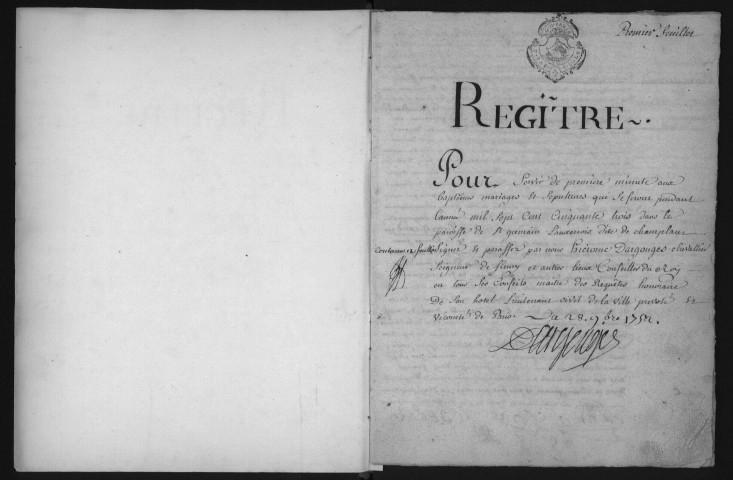 Premier feuillet
REGITRE
Pour Servir de premiere minute aux
baptêmes mariages et Sepultures qui Se feront pendant
lannée mil Sept Cent Cinquante trois dans la
paroisse de St germain Lauxerrois dite de champlan
Contenant 12 feuillets
Signé et paraffez par nous hierome Dargouges chevallier
Seigneur de fleury et autres lieux Conseiller du Roy
en tous Ses Conseils maitre des Requêtes honoraire
De Son hotel Lieutenant civil de la ville prevoté et
vicomté de Paris. Le 28. 9bre 1752.
Dargouges